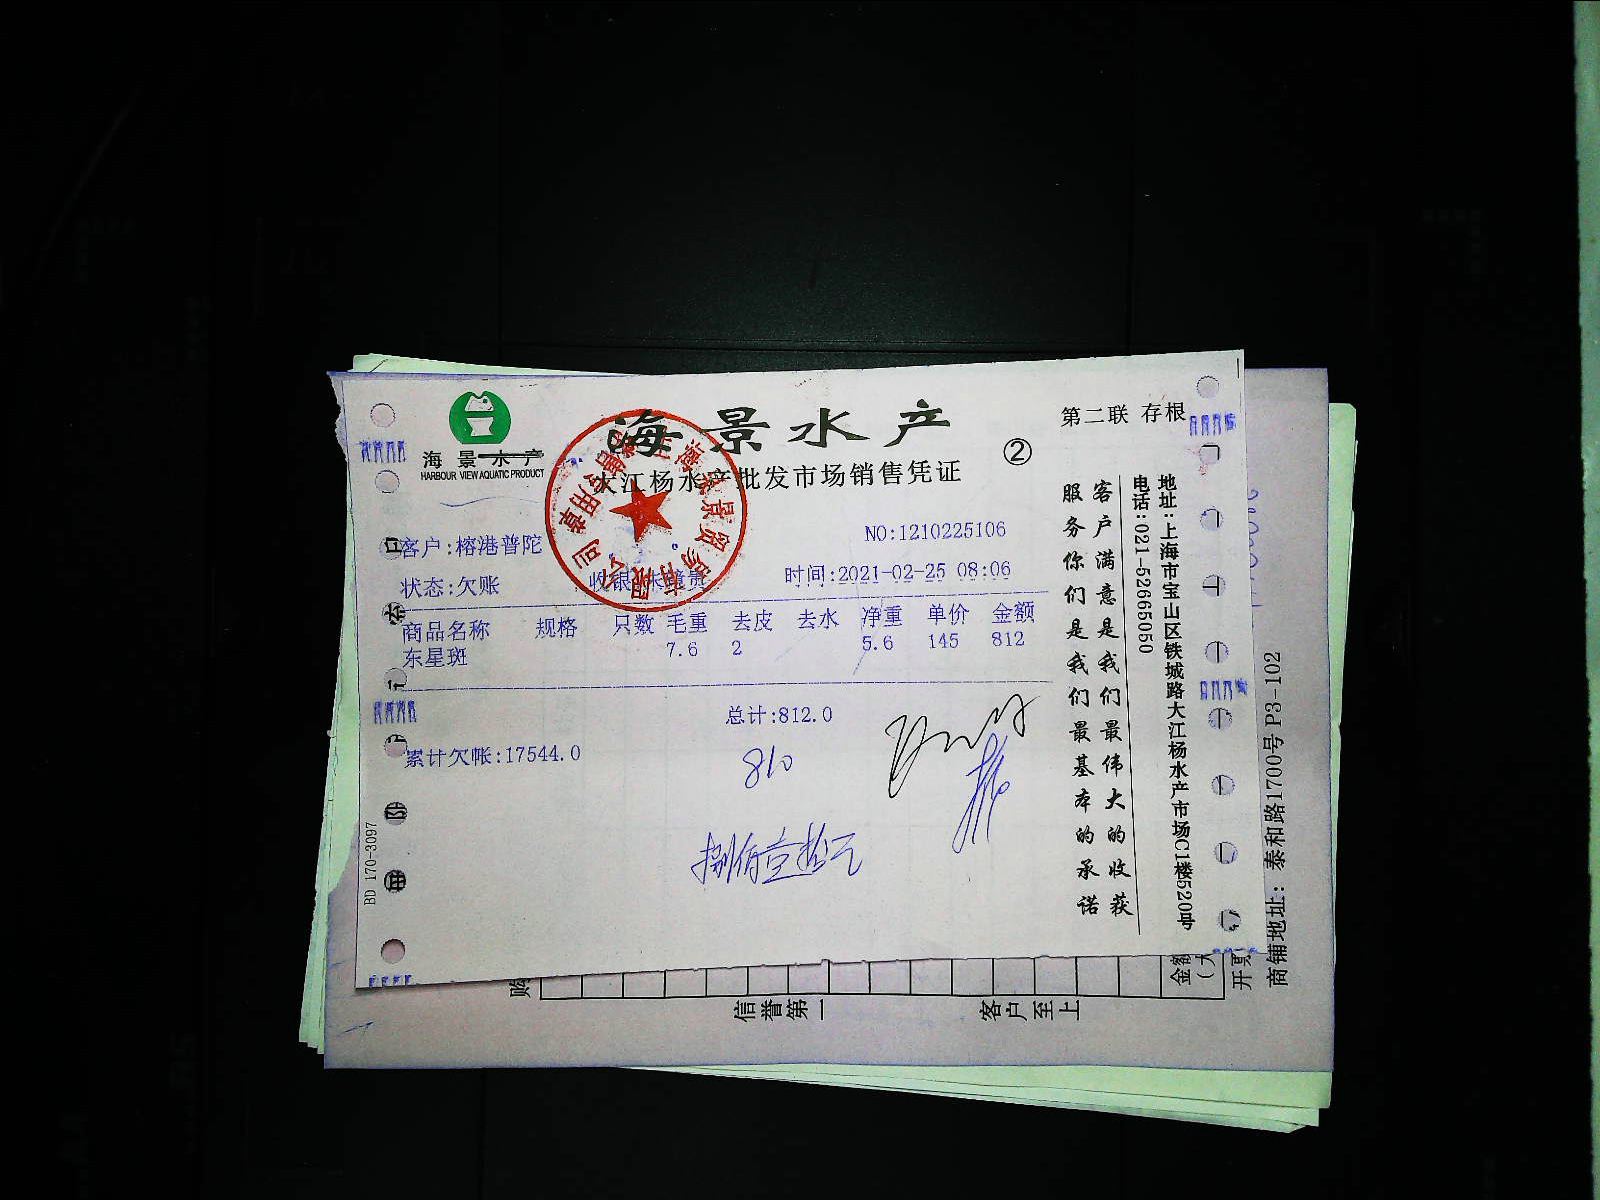 海景水产
HARBOUR VIEW AQUATIC PRODUCT
海景水产
大江杨水产批发市场销售凭证
②
第二联 存根
客户:榕港普陀
NO:1210225106
状态:欠账
收银:
时间:2021-02-25 08:06
商品名称 规格 只数 毛重 去皮 去水 净重 单价 金额
东星斑 7.6 2 5.6 145 812
总计:812.0
累计欠帐:17544.0
810
捌佰壹拾元
BD 170-3097
客户满意是我们最伟大的收获
服务你们是我们最基本的承诺
地址:上海市宝山区铁城路大江杨水产市场C1楼520号
电话:021-52665050
商铺地址: 泰和路1700号 P3-102
信誉第一
客户至上